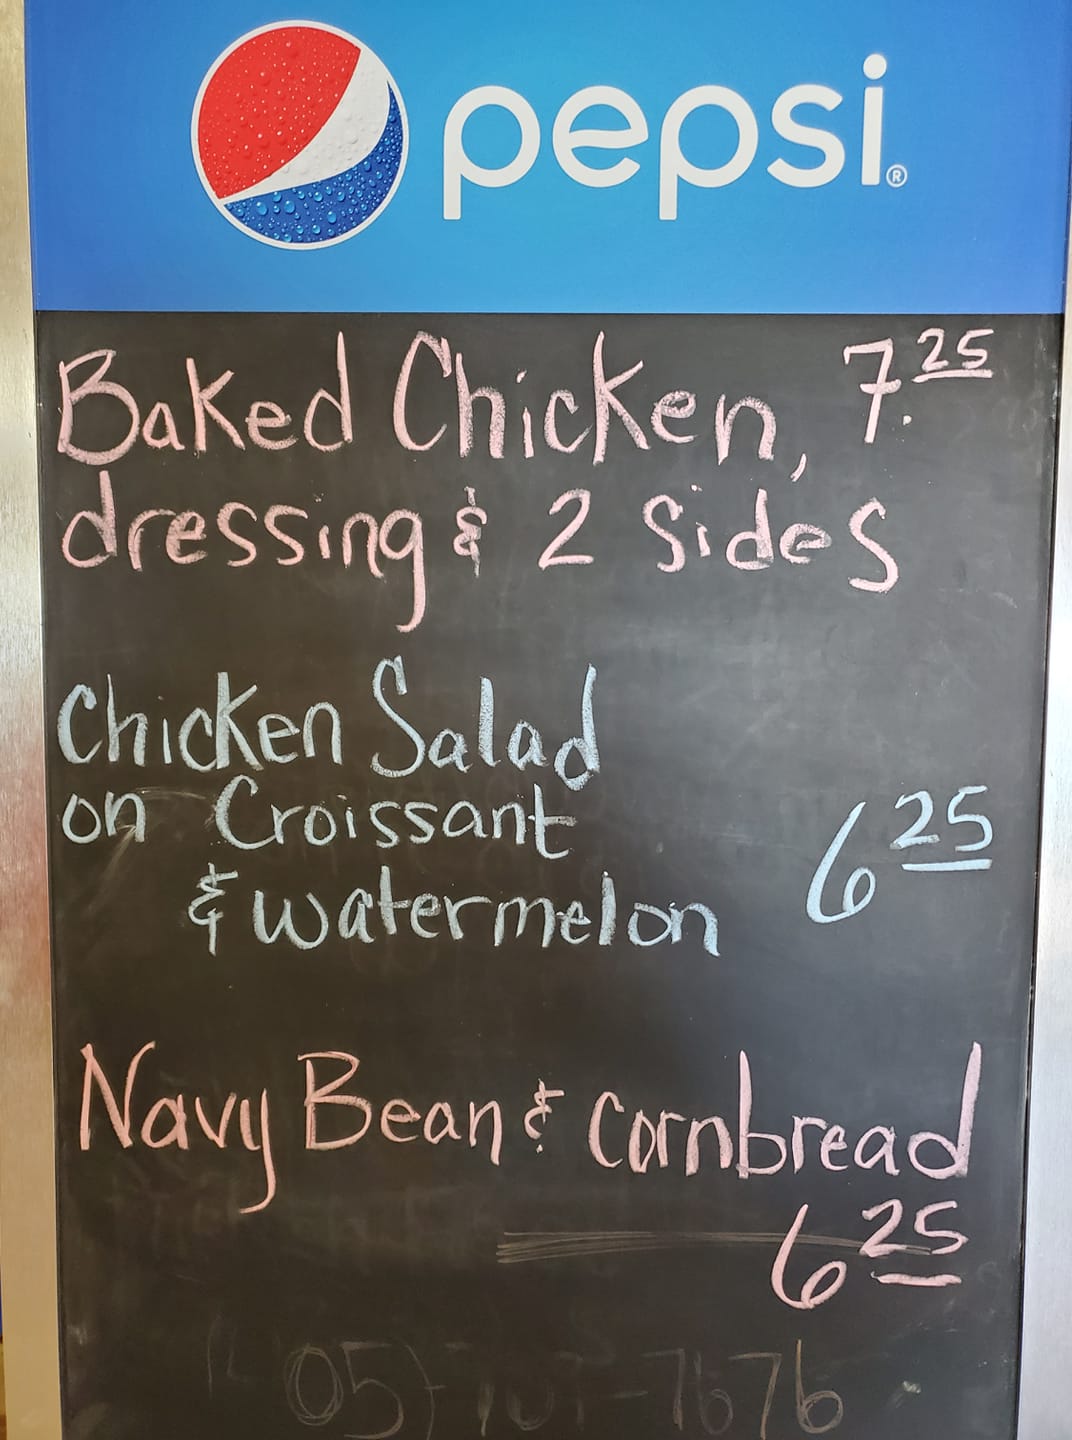 pepsi®
Baked Chicken, 7.25
dressing & 2 Sides
Chicken Salad
on Croissant
& watermelon 6 25
Navy Bean & Cornbread
6 25
05) 7676